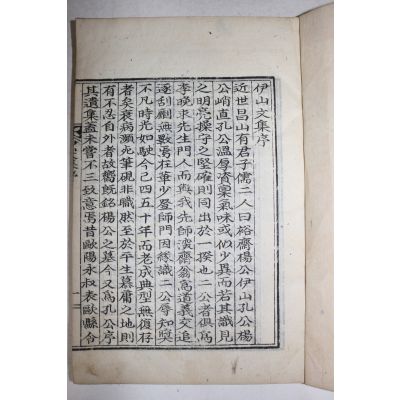 伊山文集序
近世昌山有君子儒二人曰裕齋楊公伊山孔公楊
公峭直孔公溫厚資稟氣味或似少異而若其識見
之明亮操守之堅確則同出於一揆也二公者俱爲
李晚求先生門人而與我先師深齋翁爲道義交追
逐刮劘無數焉桂華少登師門因緣識二公辱知奬
不凡時光如駛今已四五十年而老成典型無復存
者矣衰病瀕死筆硯非職然至於平生慕庸之地則
有不忍自外者故嚮旣銘楊公之墓今又爲孔公序
其遺集蓋未嘗不三致意焉昔歐陽永叔表歐縣令